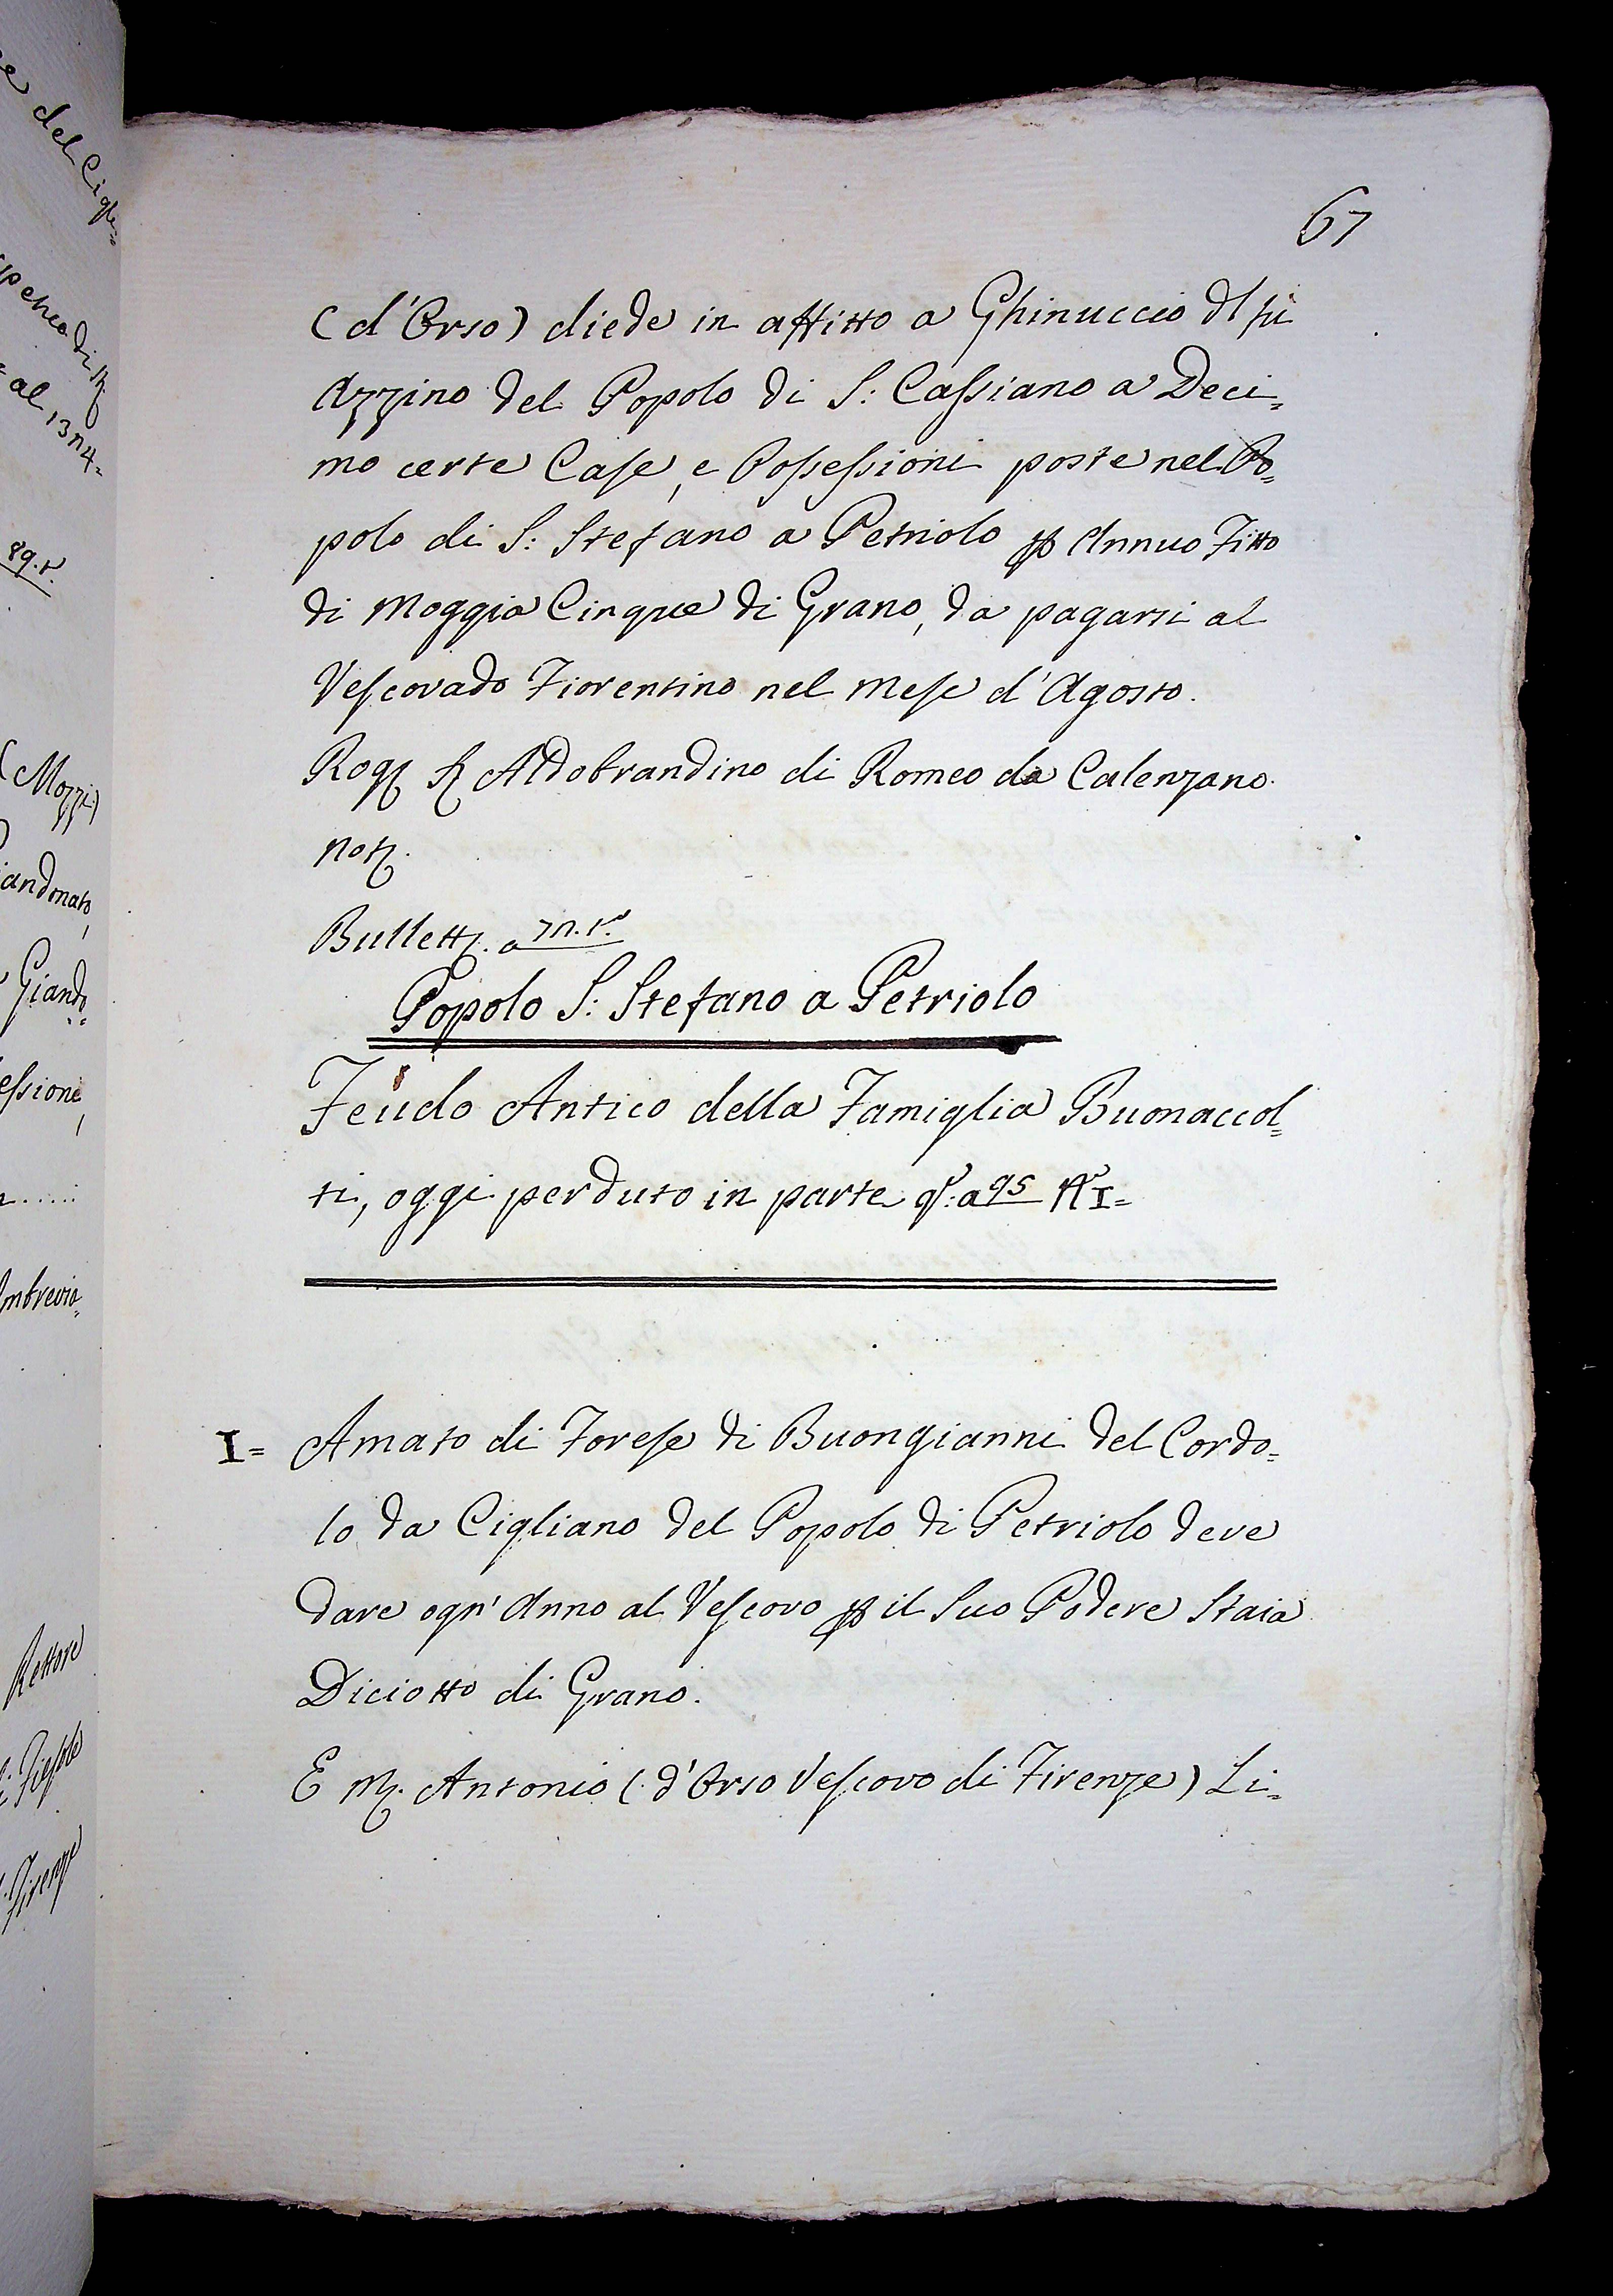 67
(d'Orso) diede in affitto a Ghinuccio
Azzino del Popolo di S: Cassiano a Deci=
mo certe Case, e Possessioni poste nel Po=
polo di S: Stefano a Petriolo p Annuo Fitto
di Moggia Cinque di Grano, da pagarsi al
Vescovado Fiorentino nel Mese d'Agosto.
Rog Aldobrandino di Romeo da Calenzano
Not.
Bullett. a
Popolo S: Stefano a Petriolo
Feudo Antico della Famiglia Buonaccol=
ti, oggi perduto in parte a 95 N I=
I= Amato di Forese di Buongianni del Cordo=
lo da Cigliano del Popolo di Petriolo deve
dare ogn'Anno al Vescovo p il Suo Podere Staia
Diciotto di Grano.
E M. Antonio (d'Orso Vescovo di Firenze) Li=
del Cigli=
al 1314=
89.r.
(Mozzi)
Giando=
Rettore
Fiesole
Firenze